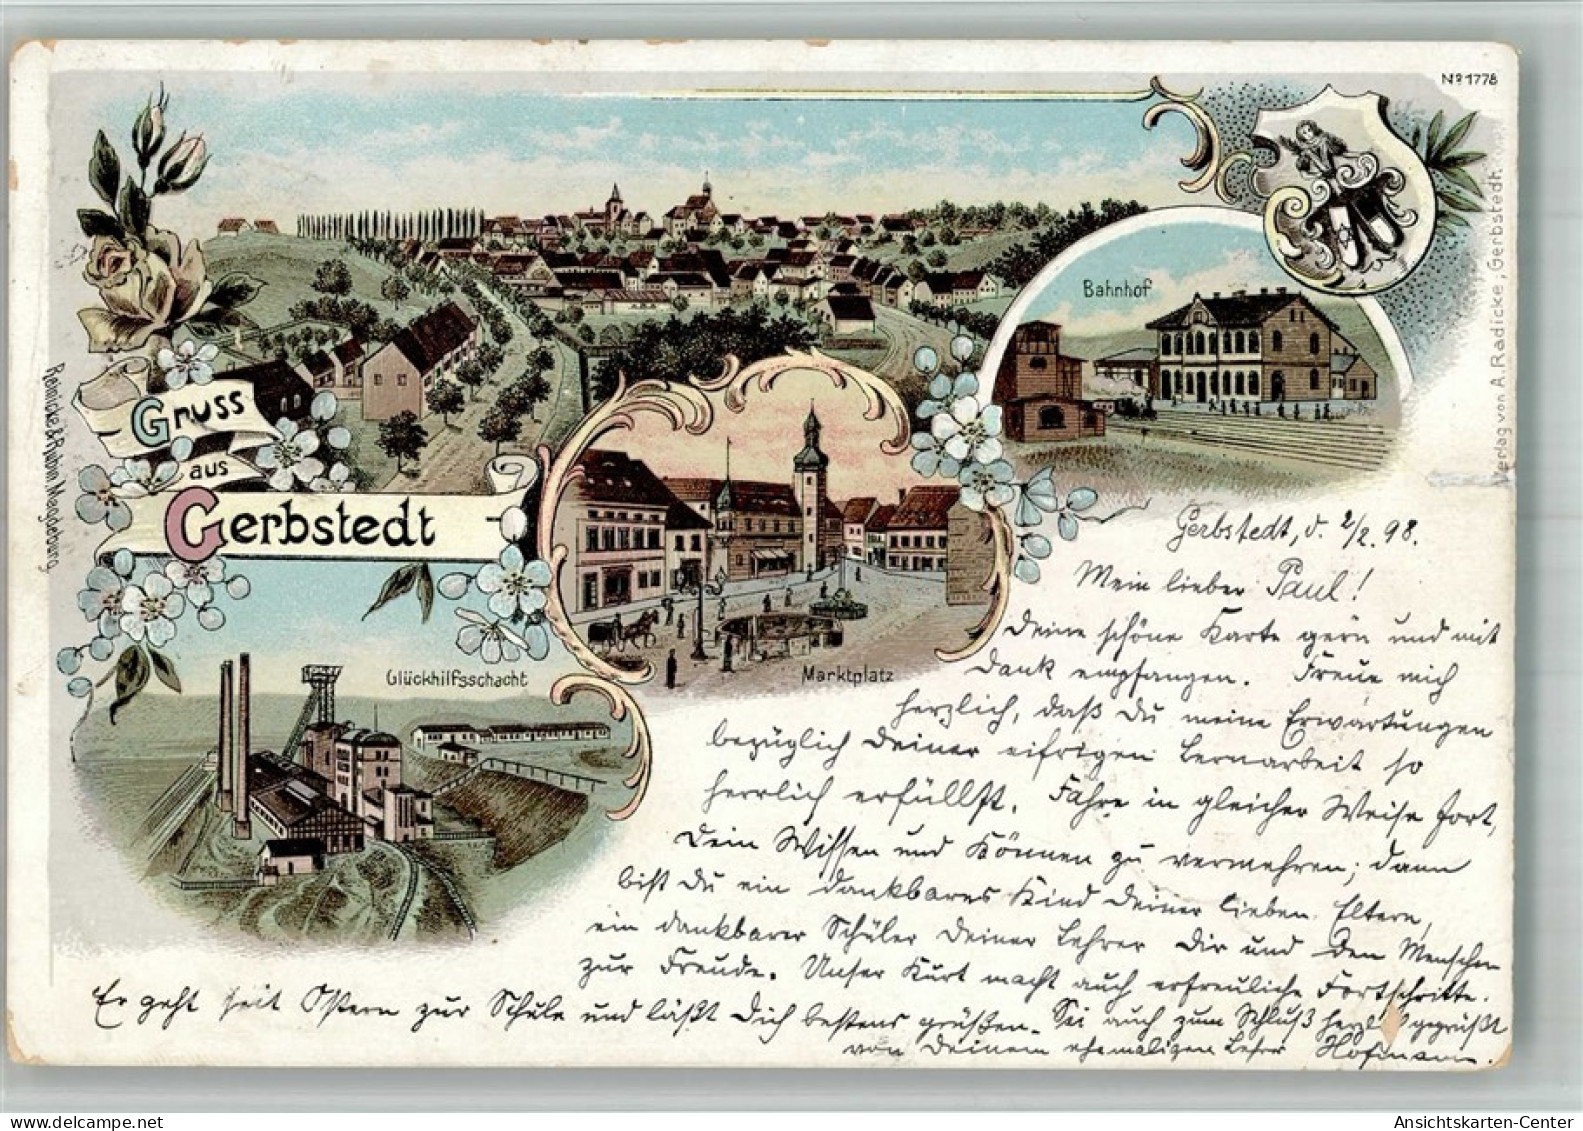 No 1778
Gruss
aus
Gerbstedt
Bahnhof
Marktplatz
Glückhilfsschacht
Reinicke & Rubin Magdeburg.
Verlag von A. Radicke, Gerbstedt.
Gerbstedt, d. 2/2. 98.
Mein lieber Paul!
Deine schöne Karte gern und mit
Dank empfangen. Freue mich
herzlich, daß Du meine Erwartungen
bezüglich Deiner eifrigen Lernarbeit so
herrlich erfüllst. Fahre in gleicher Weise fort,
Dein Wissen und Können zu vermehren; dann
bist Du ein dankbares Kind Deiner lieben Eltern,
ein dankbarer Schüler Deiner Lehrer Dir und den Menschen
zur Freude. Unser Kurt macht auch erfreuliche Fortschritte.
Er geht seit Ostern zur Schule und läßt Dich bestens grüßen. Sei auch zum Schluß herzl gegrüßt
von Deinem ehemaligen Lehrer Hofmann.
Ansichtskarten-Center